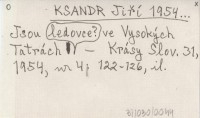 KSANDR Jiří 1954...
Jsou ledovce? ve Vysokých
Tatrách — Krásy Slov. 31,
1954, nr 4, 122-126, il.